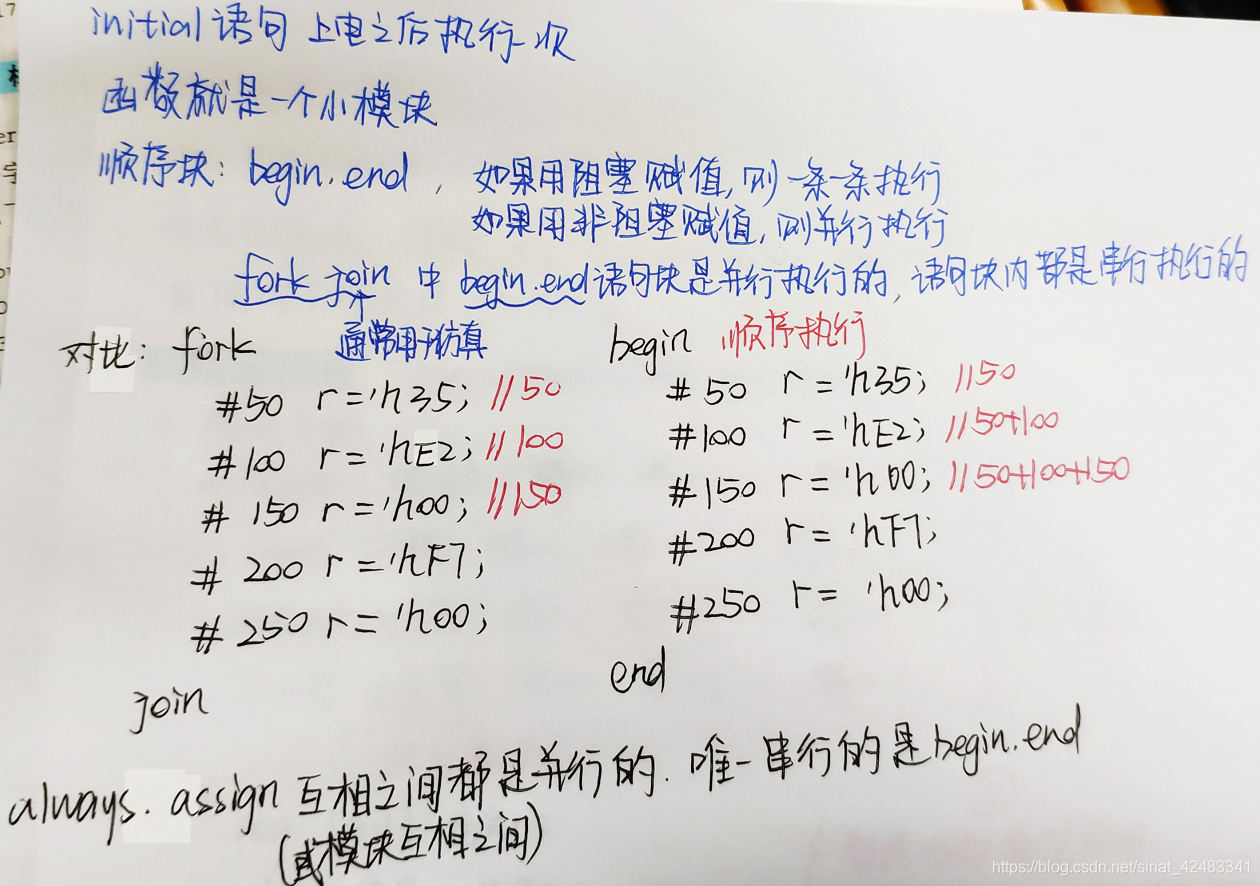 initial 语句 上电之后执行一次
函数就是一个小模块
顺序块: begin.end , 如果用阻塞赋值,则一条一条执行
如果用非阻塞赋值,则并行执行
fork join 中 begin.end语句块是并行执行的,语句块内都是串行执行的
通常用于仿真
对比: fork
#50 r='h35; //50
#100 r='hE2; //100
#150 r='h00; //150
#200 r='hF7;
#250 r='h00;
join
begin 顺序执行
#50 r='h35; //50
#100 r='hE2; //50+100
#150 r='h00; //50+100+150
#200 r='hF7;
#250 r='h00;
end
always. assign 互相之间都是并行的. 唯一串行的是begin.end
(或模块互相之间)
https://blog.csdn.net/sinat_42483341